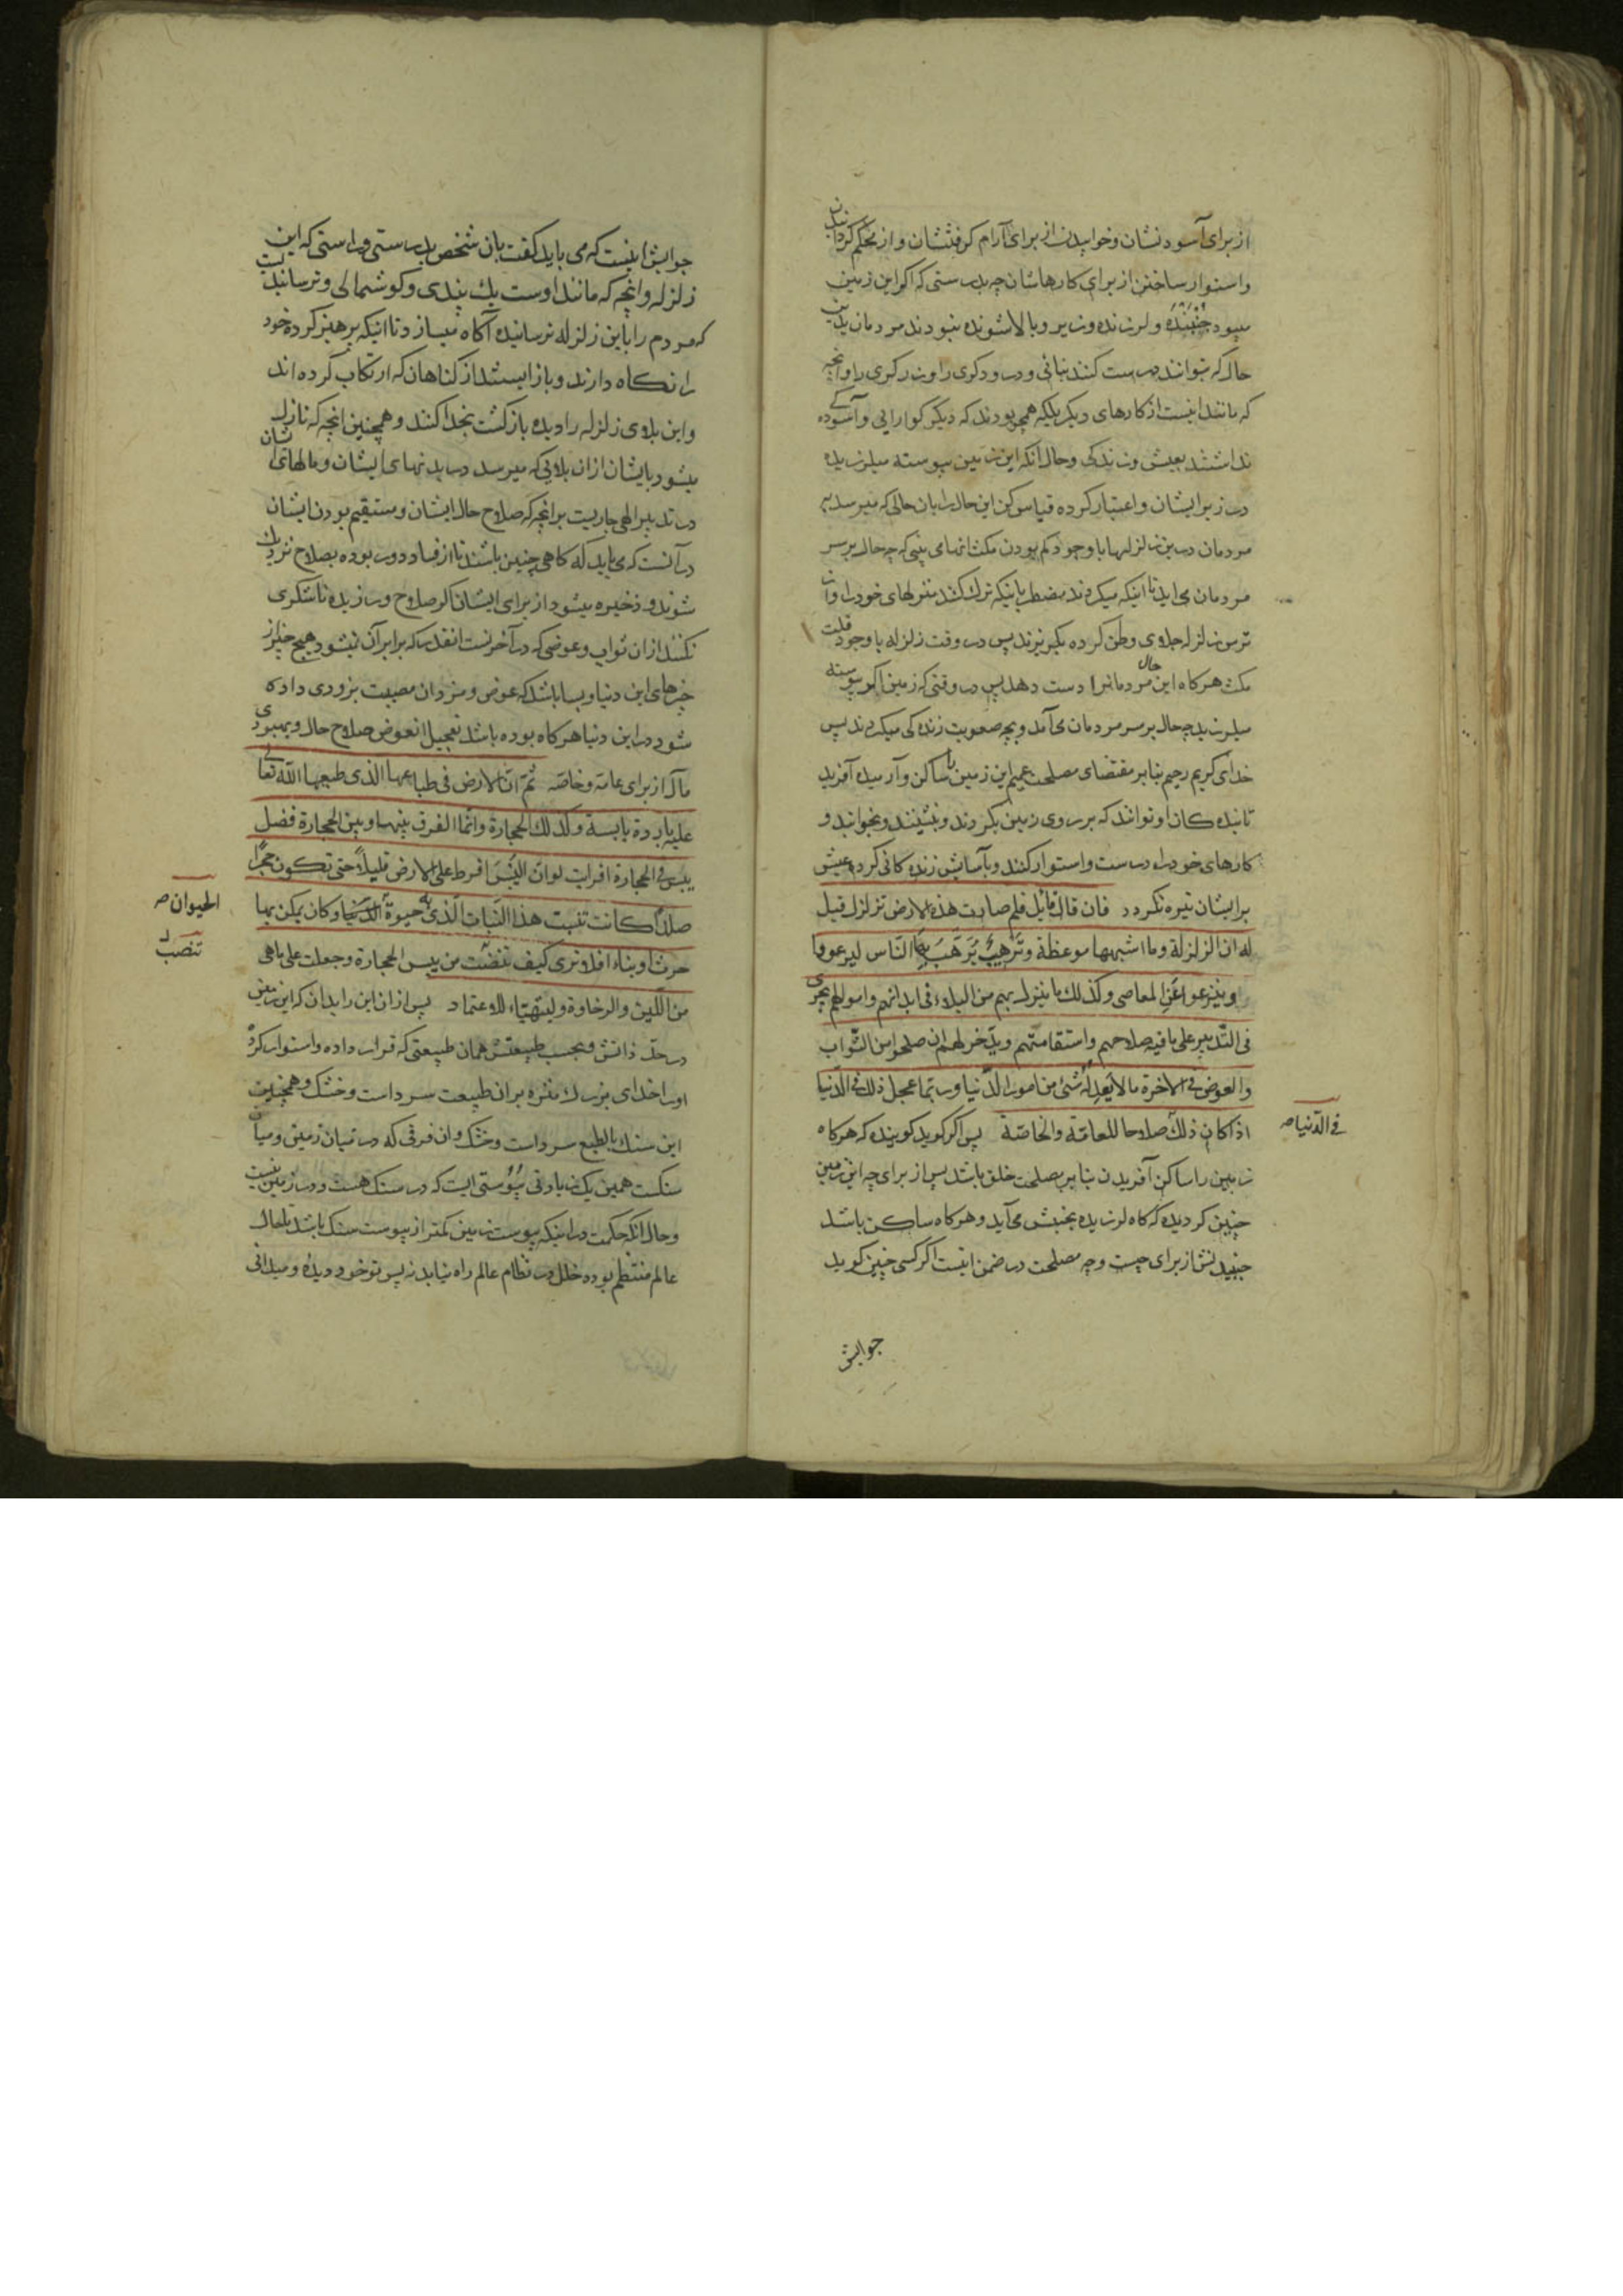 از برای آسودنشان و خوابیدن از برای آرام کرفتنشان و از محکم کردانیدن
و استوار ساختن از برای کارهاشان چه بدرستی که اکر این زمین
میبود جُنبَنده و لرزنده و زیر و بالا شونده نبودند مردمان بدین
حال که بتوانند درست کنند بنائی و درودکری را و زرکری را و آنچه
که مانند اینست از کارهای دیکر بلکه همچو بودند که دیکر کوارایی و آسوده کے
نداشتند بعیش و زندکی و حال آنکه این زمین پیوسته میلرزیده
در زیر ایشان و اعتبار کرده قیاس کن این حال را بان حالی که میرسد بر
مردمان درین زلزلها با وجود کم بودن مکث انها می بینی که چه حال بر سر
مردمان می اید تا اینکه میکردند مضطر باینکه ترک کنند منزلهای خود را و از
ترس زلزله جلای وطن کرده بکریزند پس در وقت زلزله با وجود قلت
مکث هرکاه این حال مردمانرا دست دهد پس در وقتی که زمین اکر پیوسته
میلرزید چه حال بر سر مردمان می آمد و بچه صعوبت زنده کی میکردند پس
خدای کریم رحیم بنا بر مقتضای مصلحت عمیم این زمین را ساکن و آرمیده آفرید
تا بنده کان او توانند که بر روی زمین بکردند و بنشینند و بخوابند و
کارهای خود را درست و استوار کنند و بآسایش زنده کانی کرده عیش
بر ایشان تیره نکردد فان قال قائل فلم صارت هذه الارض تزلزل قیل
له ان الزلزلة و ما اشبهها موعظة و تَرهیبٌ یُرَهَّبَ بِهَا النّاس لیرعووا
و ینزعوا عَنِ المعاصی و کذلك ما ینزل بهم من البلاء فی ابدانهم و اموالهم یجری
فی التّدبیر علی ما فیه صلاحهم و استقامتهم و یدّخر لهم ان صلحوا من الثّواب
و العوض فی الاخرة ما لا یَعدِلُهُ شئ من امور الدّنیا و ربّما عجل ذلك فی الدّنیا
فی الدّنیا ص
اذا کان ذلك صلاحا للعامّة و الخاصّة پس اکر کوید کوینده که هرکاه
زمین را ساکن آفریدن بنا بر مصلحت خلق باشد پس از برای چه این زمین
چنین کردیده که کاه لرزیده بجنبش می آید و هرکاه ساکن باشد
جنبیدنش از برای چیست و چه مصلحت در ضمن اینست اکر کسی چنین کوید
جوابش
جوابش اینست که می باید کفت بان شخص بدرستی و راستی که این
زلزله و انچه که مانند اوست یك پندی و کوشمالی و ترسانیدنیست
که مردم را باین زلزله ترسانیده آکاه میسازد تا اینکه پرهیز کرده خود
را نکاه دارند و باز ایستند از کناهان که ارتکاب کرده اند
و این بلای زلزله را دیده بازکشت بخدا کنند و همچنین انچه که نازل
میشود بایشان ازان بلایی که میرسد در بدنهای ایشان و مالهای شان
در تدبیر الهی جاریست بر انچه که صلاح حال ایشان و مستقیم بودن ایشان
در آنست که می باید که کاهی چنین باشند تا از فساد دور بوده بصلاح نزدیك
شوند و ذخیره میشود از برای ایشان اکر صلاح ورزیده ناشکری
نکنند ازان ثواب و عوضی که در آخرتست انقدر که برابر آن نمیشود هیچ چیز از
چیزهای این دنیا و بسا باشد که عوض و مزد ان مصیبت بزودی داده
شود در این دنیا هرکاه بوده باشد تعجیل انعوض صلاح حال و بهبودی
مآل از برای عامّه و خاصّه ثمّ انّ الارض فی طباعها الذی طبعها اللّه تعالی
علیه باردة یابسة و کذلك الحجارة و انّما الفرق بینها و بین الحجارة فضل
یبس فی الحجارة افرایت لو انّ الیَبَسَ افرط علی الارض قلیلاً حتی تکون حجرًا
صلدًا کانت تنبت هذا النّبات الّذی به حیوة الدنیا و کان یمکن بها
الحیوان ص
حرث او بناء افلا تری کیف نقصَت من یبس الحجارة و جعلت علی ما هی
من اللّین و الرخاوة و لیتهیّاء للاعتماد پس ازان این را بدان که این زمین
در حدّ ذاتش و بحسب طبیعتش همان طبیعتی که قرار داده و استوار کرد
اورا خدای بزرك منزه بران طبیعت سرد است و خشك و همچنین
این سنك بالطبع سرد است و خشك و ان فرقی که در میان زمین و میان
سنکست همین یک زیادتی یبُوستی است که در سنک هست و در زمین نیست
و حال انکه حکمت در اینکه یبوست زمین کمتر از یبوست سنک باشد تا حال
عالم منتظم بوده خلل در نظام عالم راه نیابد پس تو خود دیدهٔ و میدانی